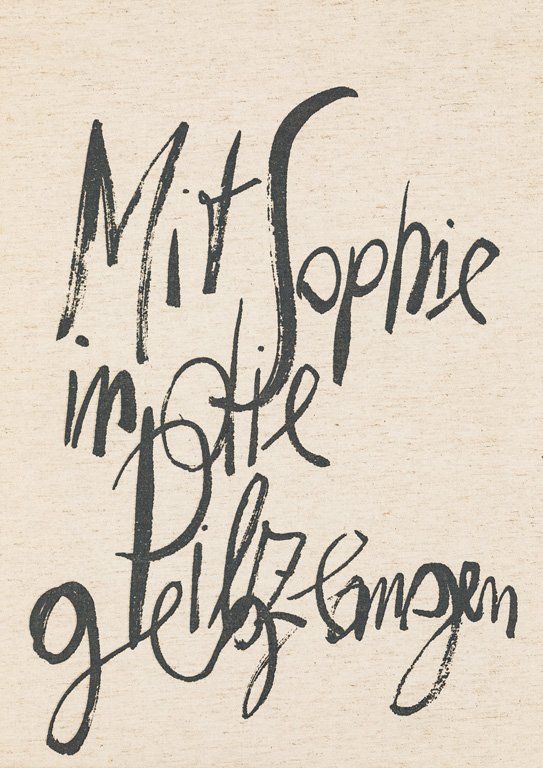 Mit Sophie
in die
Pilze
gegangen